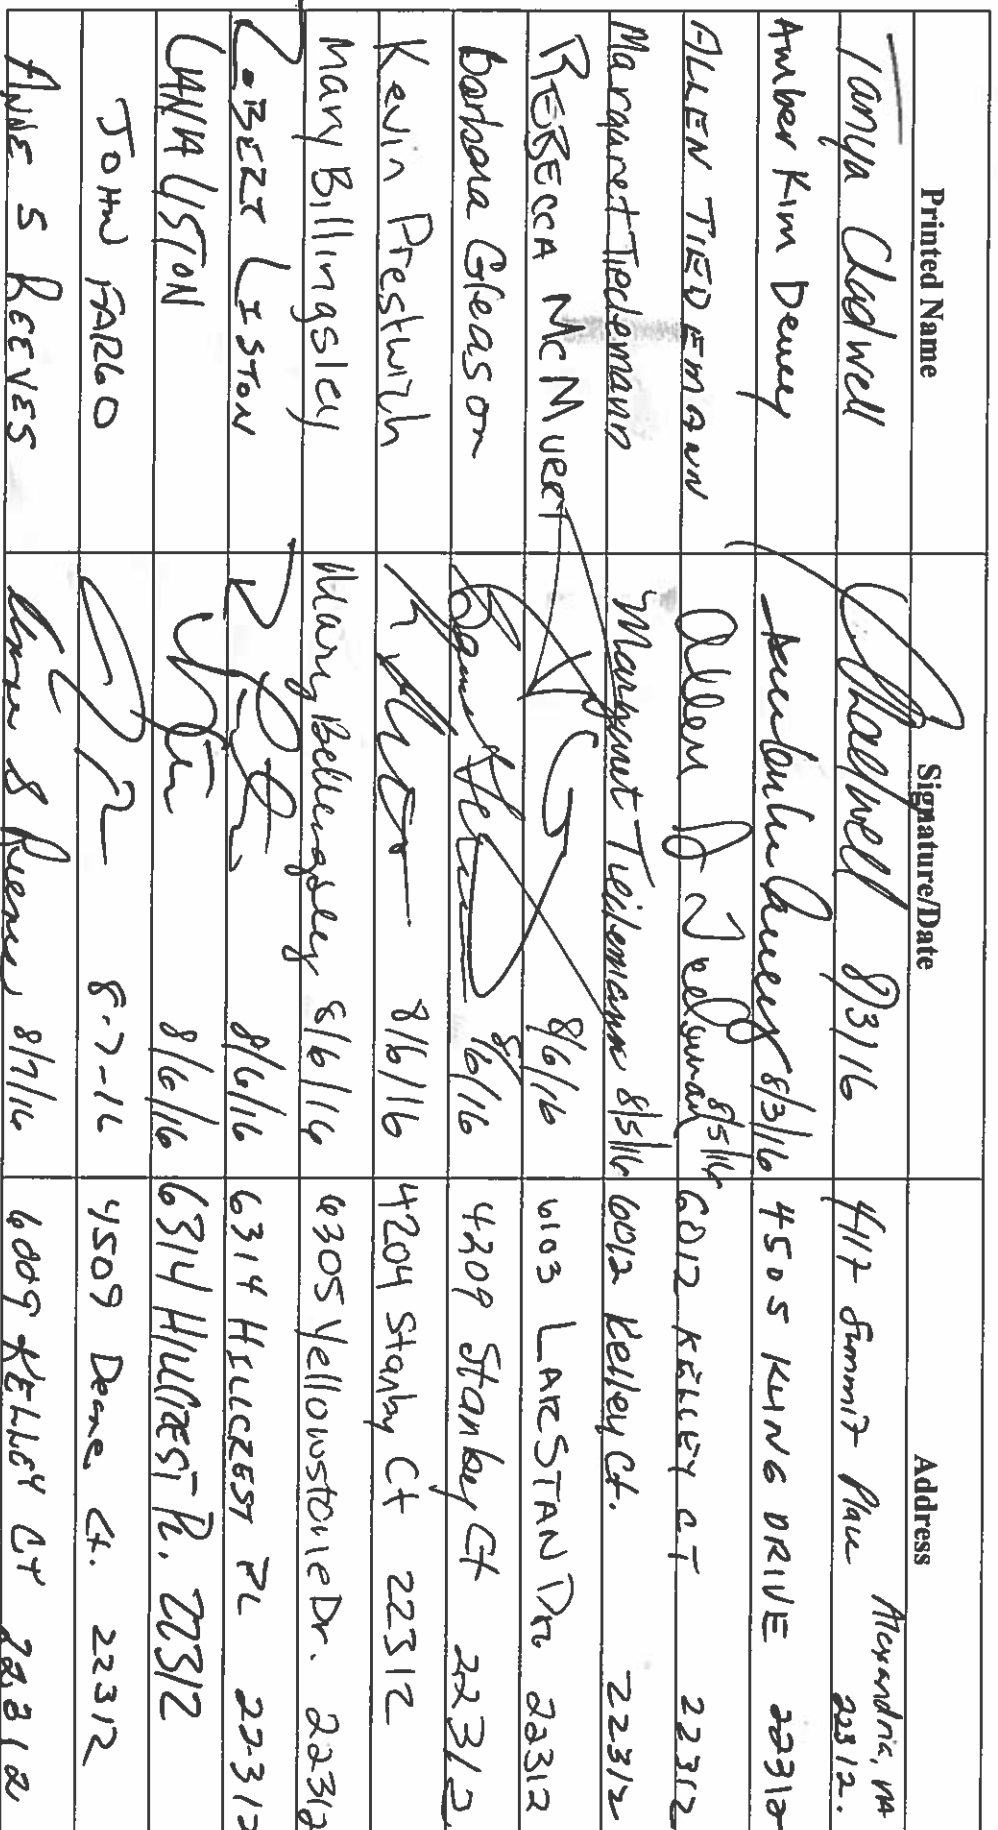 Printed Name Signature/Date Address
Tanya Chadwell Chadwell 8/3/16 4117 Summit Place Alexandria, VA 22312.
Amber Kim Dewey 8/3/16 4505 KING DRIVE 22312
ALLEN TIEDEMANN Allen 8/5/16 6012 KELLEY CT 22312
Margaret Tiedemann Margaret Tiedemann 8/5/16 6012 Kelley Ct. 22312
REBECCA 8/6/16 6103 LARSTAN DR 22312
Barbara Gleason 8/6/16 4209 Stanby Ct 22312
Kevin Prestwich 8/6/16 4204 Stanby Ct 22312
Mary Billingsley Mary Billingsley 8/6/16 6305 Yellowstone Dr. 22312
LISTON 8/6/16 6314 HILLCREST PL 22312
LISTON 8/6/16 6314 HILLCREST 22312
JOHN FARGO 8-7-16 4509 Ct. 22312
ANNE S REEVES Anne S Reeves 8/7/16 6009 KELLEY CT 22312